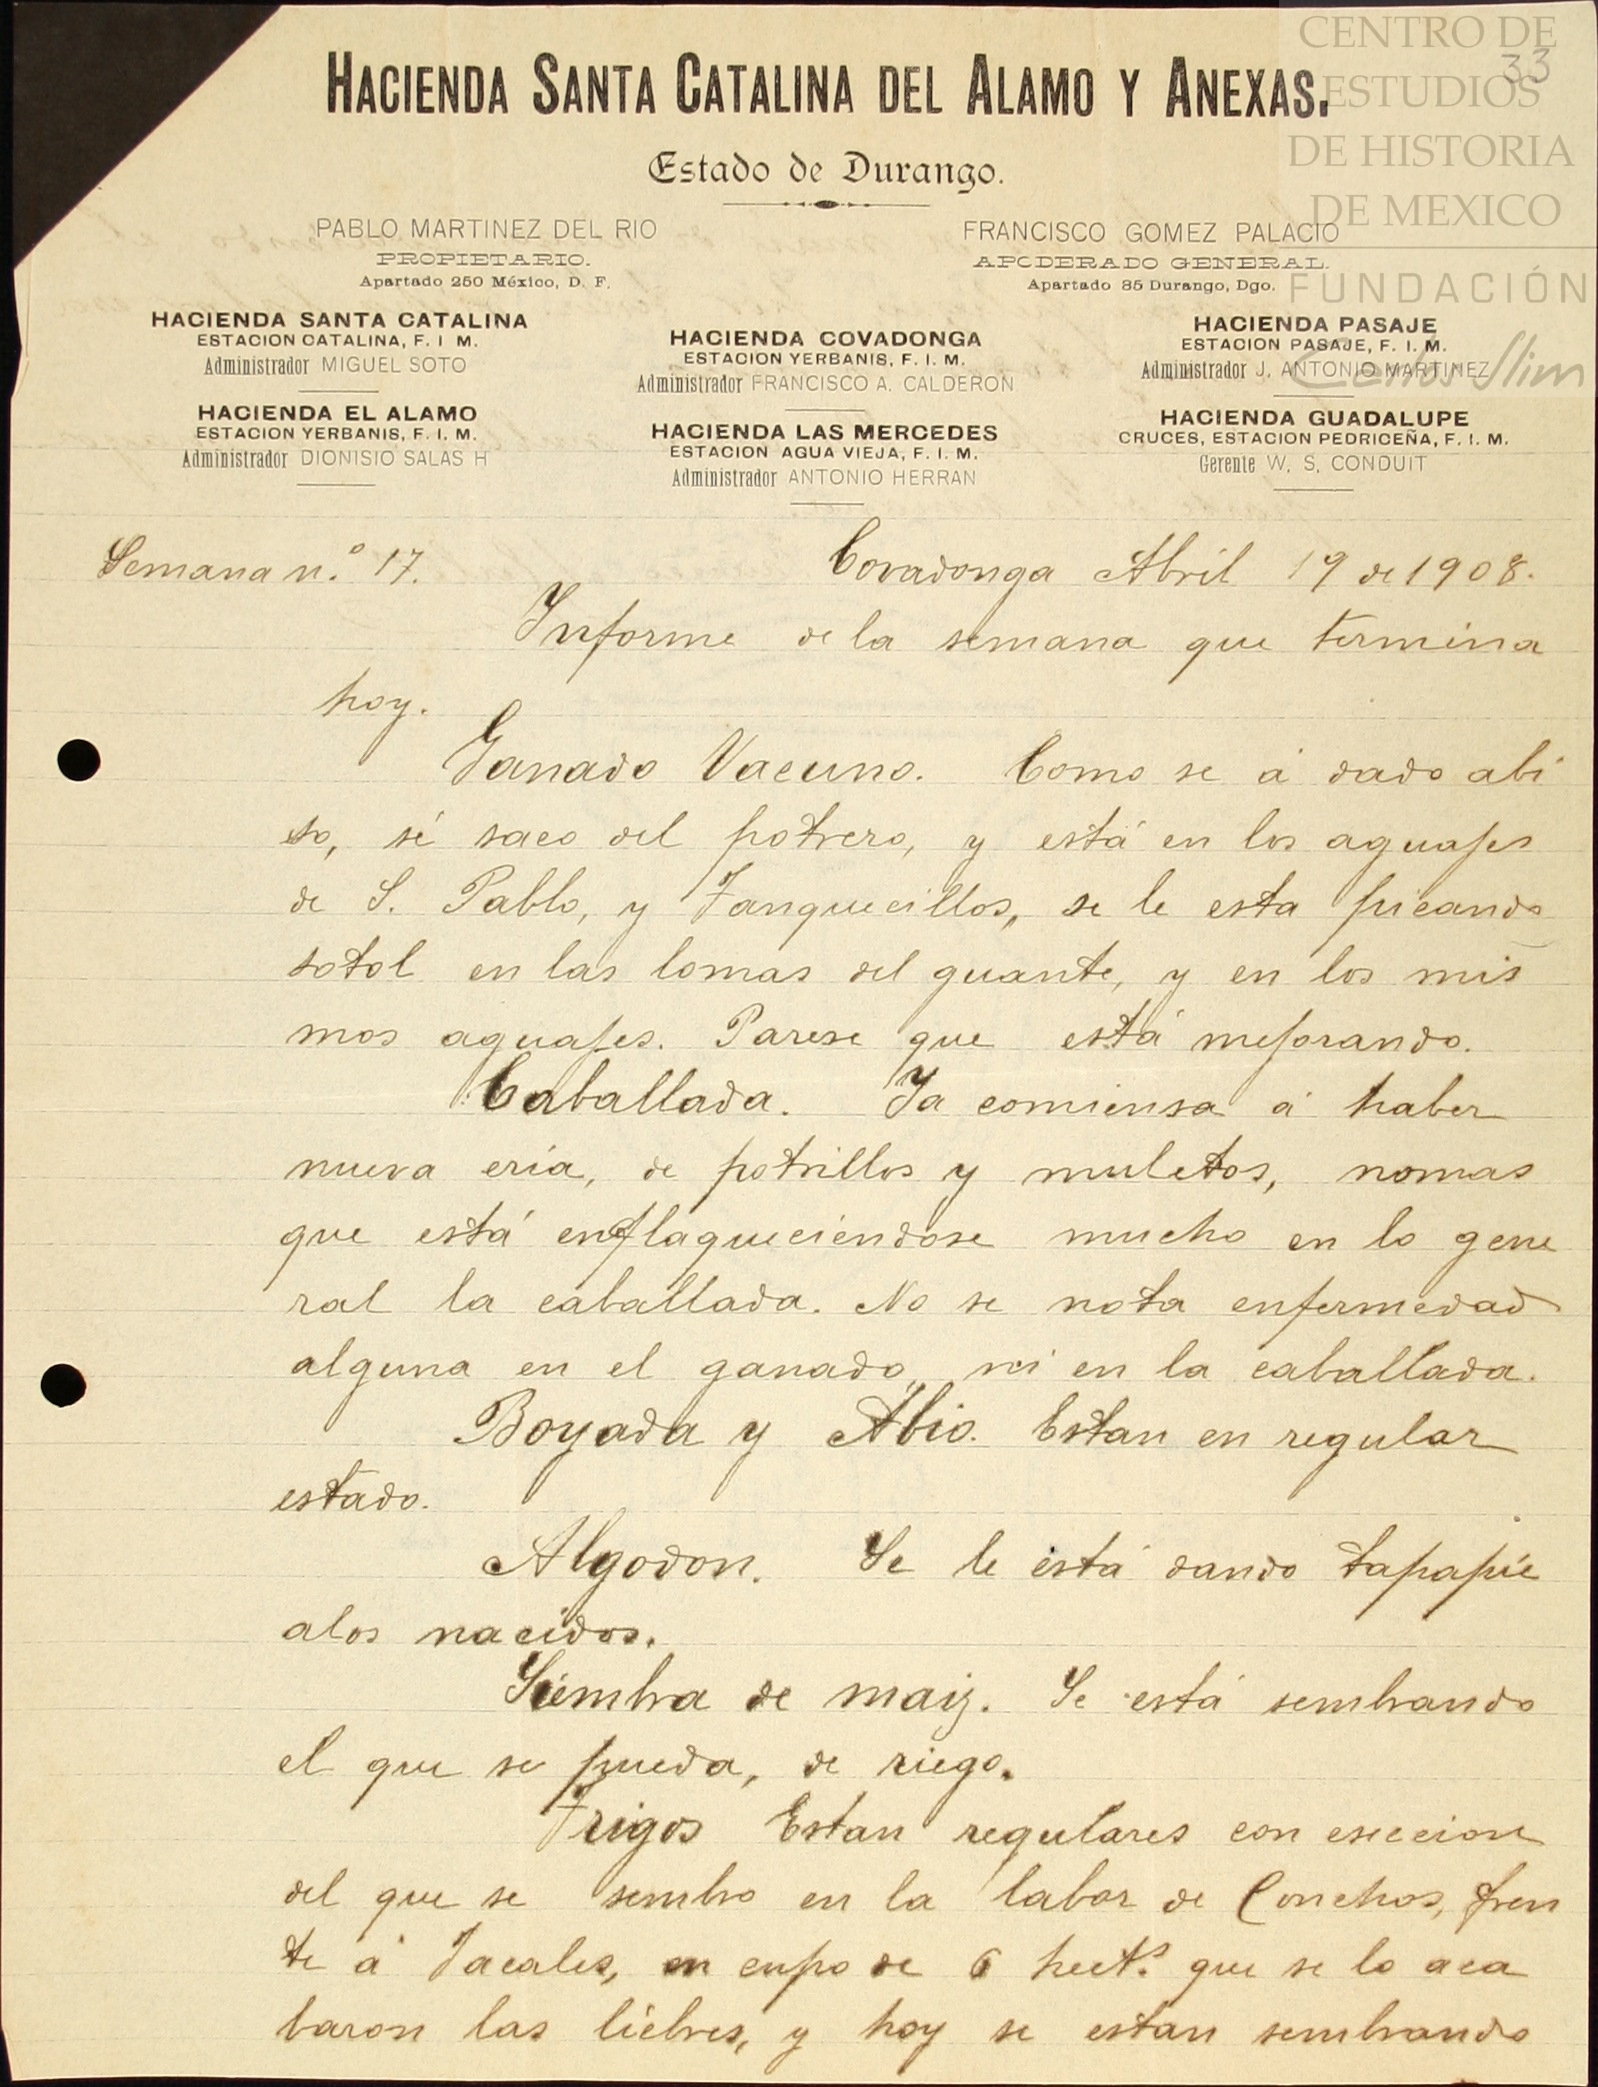 CENTRO DE
ESTUDIOS
DE HISTORIA
DE MEXICO
FUNDACIÓN
Carlos Slim
33
HACIENDA SANTA CATALINA DEL ALAMO Y ANEXAS.
Estado de Durango.
PABLO MARTINEZ DEL RIO
PROPIETARIO.
Apartado 250 México, D. F.
FRANCISCO GOMEZ PALACIO
APODERADO GENERAL.
Apartado 85 Durango, Dgo.
HACIENDA SANTA CATALINA
ESTACION CATALINA, F. I M.
Administrador MIGUEL SOTO
HACIENDA EL ALAMO
ESTACION YERBANIS, F. I. M.
Administrador DIONISIO SALAS H
HACIENDA COVADONGA
ESTACION YERBANIS, F. I. M.
Administrador FRANCISCO A. CALDERON
HACIENDA LAS MERCEDES
ESTACION AGUA VIEJA, F. I. M.
Administrador ANTONIO HERRAN
HACIENDA PASAJE
ESTACION PASAJE, F. I. M.
Administrador J. ANTONIO MARTINEZ
HACIENDA GUADALUPE
CRUCES, ESTACION PEDRICEÑA, F. I. M.
Gerente W. S. CONDUIT
Semana n.º 17. Covadonga Abril 19 de 1908.
Informe de la semana que termina
hoy.
Ganado Vacuno. Como se á dado abi
so, sé saco del potrero, y está en los aguajes
de S. Pablo, y Tanquecillos, se le esta picando
sotol en las lomas del guante, y en los mis
mos aguajes. Parese que está mejorando.
Caballada. Ya comiensa á haber
nueva cria, de potrillos y muletos, nomas
que está enflaqueciendose mucho en lo gene
ral la caballada. No se nota enfermedad
alguna en el ganado, ni en la caballada.
Boyada y Abio. Estan en regular
estado.
Algodon. Se le está dando tapapie
alos nacidos.
Siembra de maiz. Se está sembrando
el que se pueda, de riego.
Trigos Estan regulares con esecion
del que se sembro en la labor de Conchos, fren
te á Jacales, en cupo de 6 hect.s que se lo aca
baron las liebres, y hoy se estan sembrando